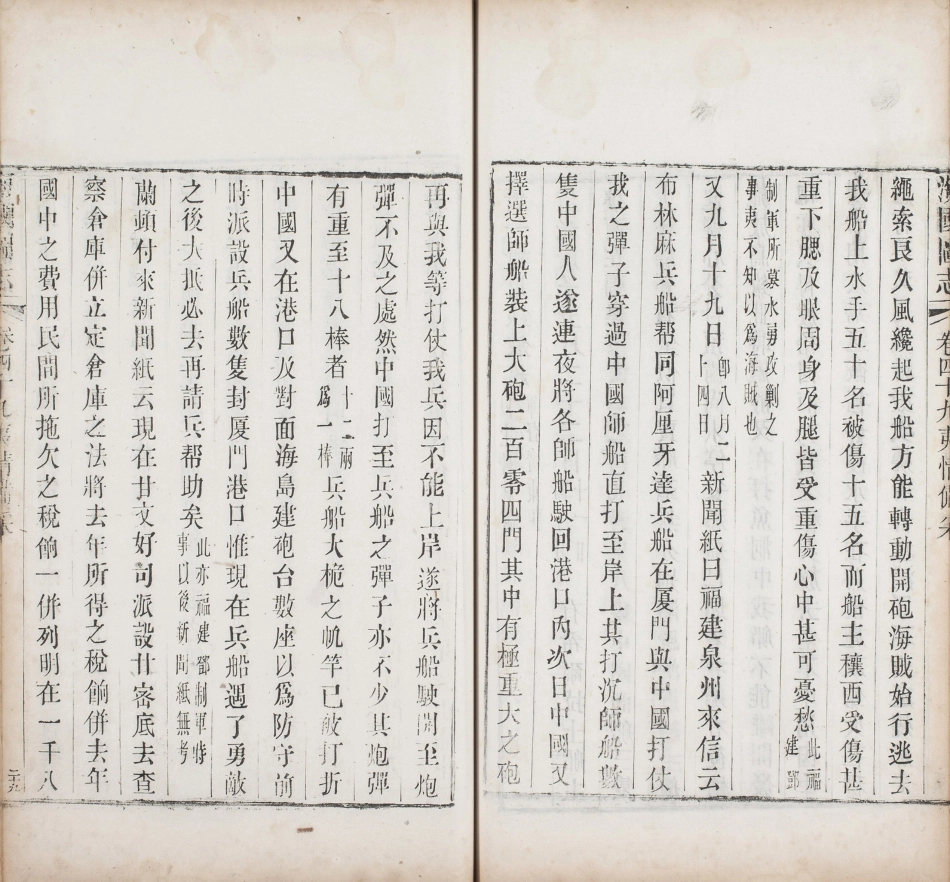 海國圖志 卷四十九夷情備采
繩索良久風纔起我船方能轉動開砲海賊始行逃去
我船上水手五十名被傷十五名而船主穰西受傷甚
重下腮及眼周身及腿皆受重傷心中甚可憂愁此福建鄧
制軍所募水勇攻剿之事夷不知以爲海賊也
又九月十九日卽八月二十四日新聞紙曰福建泉州來信云
布林麻兵船帮同阿厘牙達兵船在廈門與中國打仗
我之彈子穿過中國師船直打至岸上其打沉師船數
隻中國人遂連夜將各師船駛回港口內次日中國又
擇選師船裝上大砲二百零四門其中有極重大之砲
再與我等打仗我兵因不能上岸遂將兵船駛開至炮
彈不及之處然中國打至兵船之彈子亦不少其炮彈
有重至十八棒者十二兩爲一棒兵船大桅之帆竿已被打折
中國又在港口及對面海島建砲台數座以爲防守前
時派設兵船數隻封廈門港口惟現在兵船遇了勇敵
之後大抵必去再請兵帮助矣此亦福建鄧制軍時事以後新聞紙無考
蘭頓付來新聞紙云現在甘文好司派設甘密底去查
察倉庫併立定倉庫之法將去年所得之稅餉併去年
國中之費用民間所拖欠之稅餉一併列明在一千八
二十九